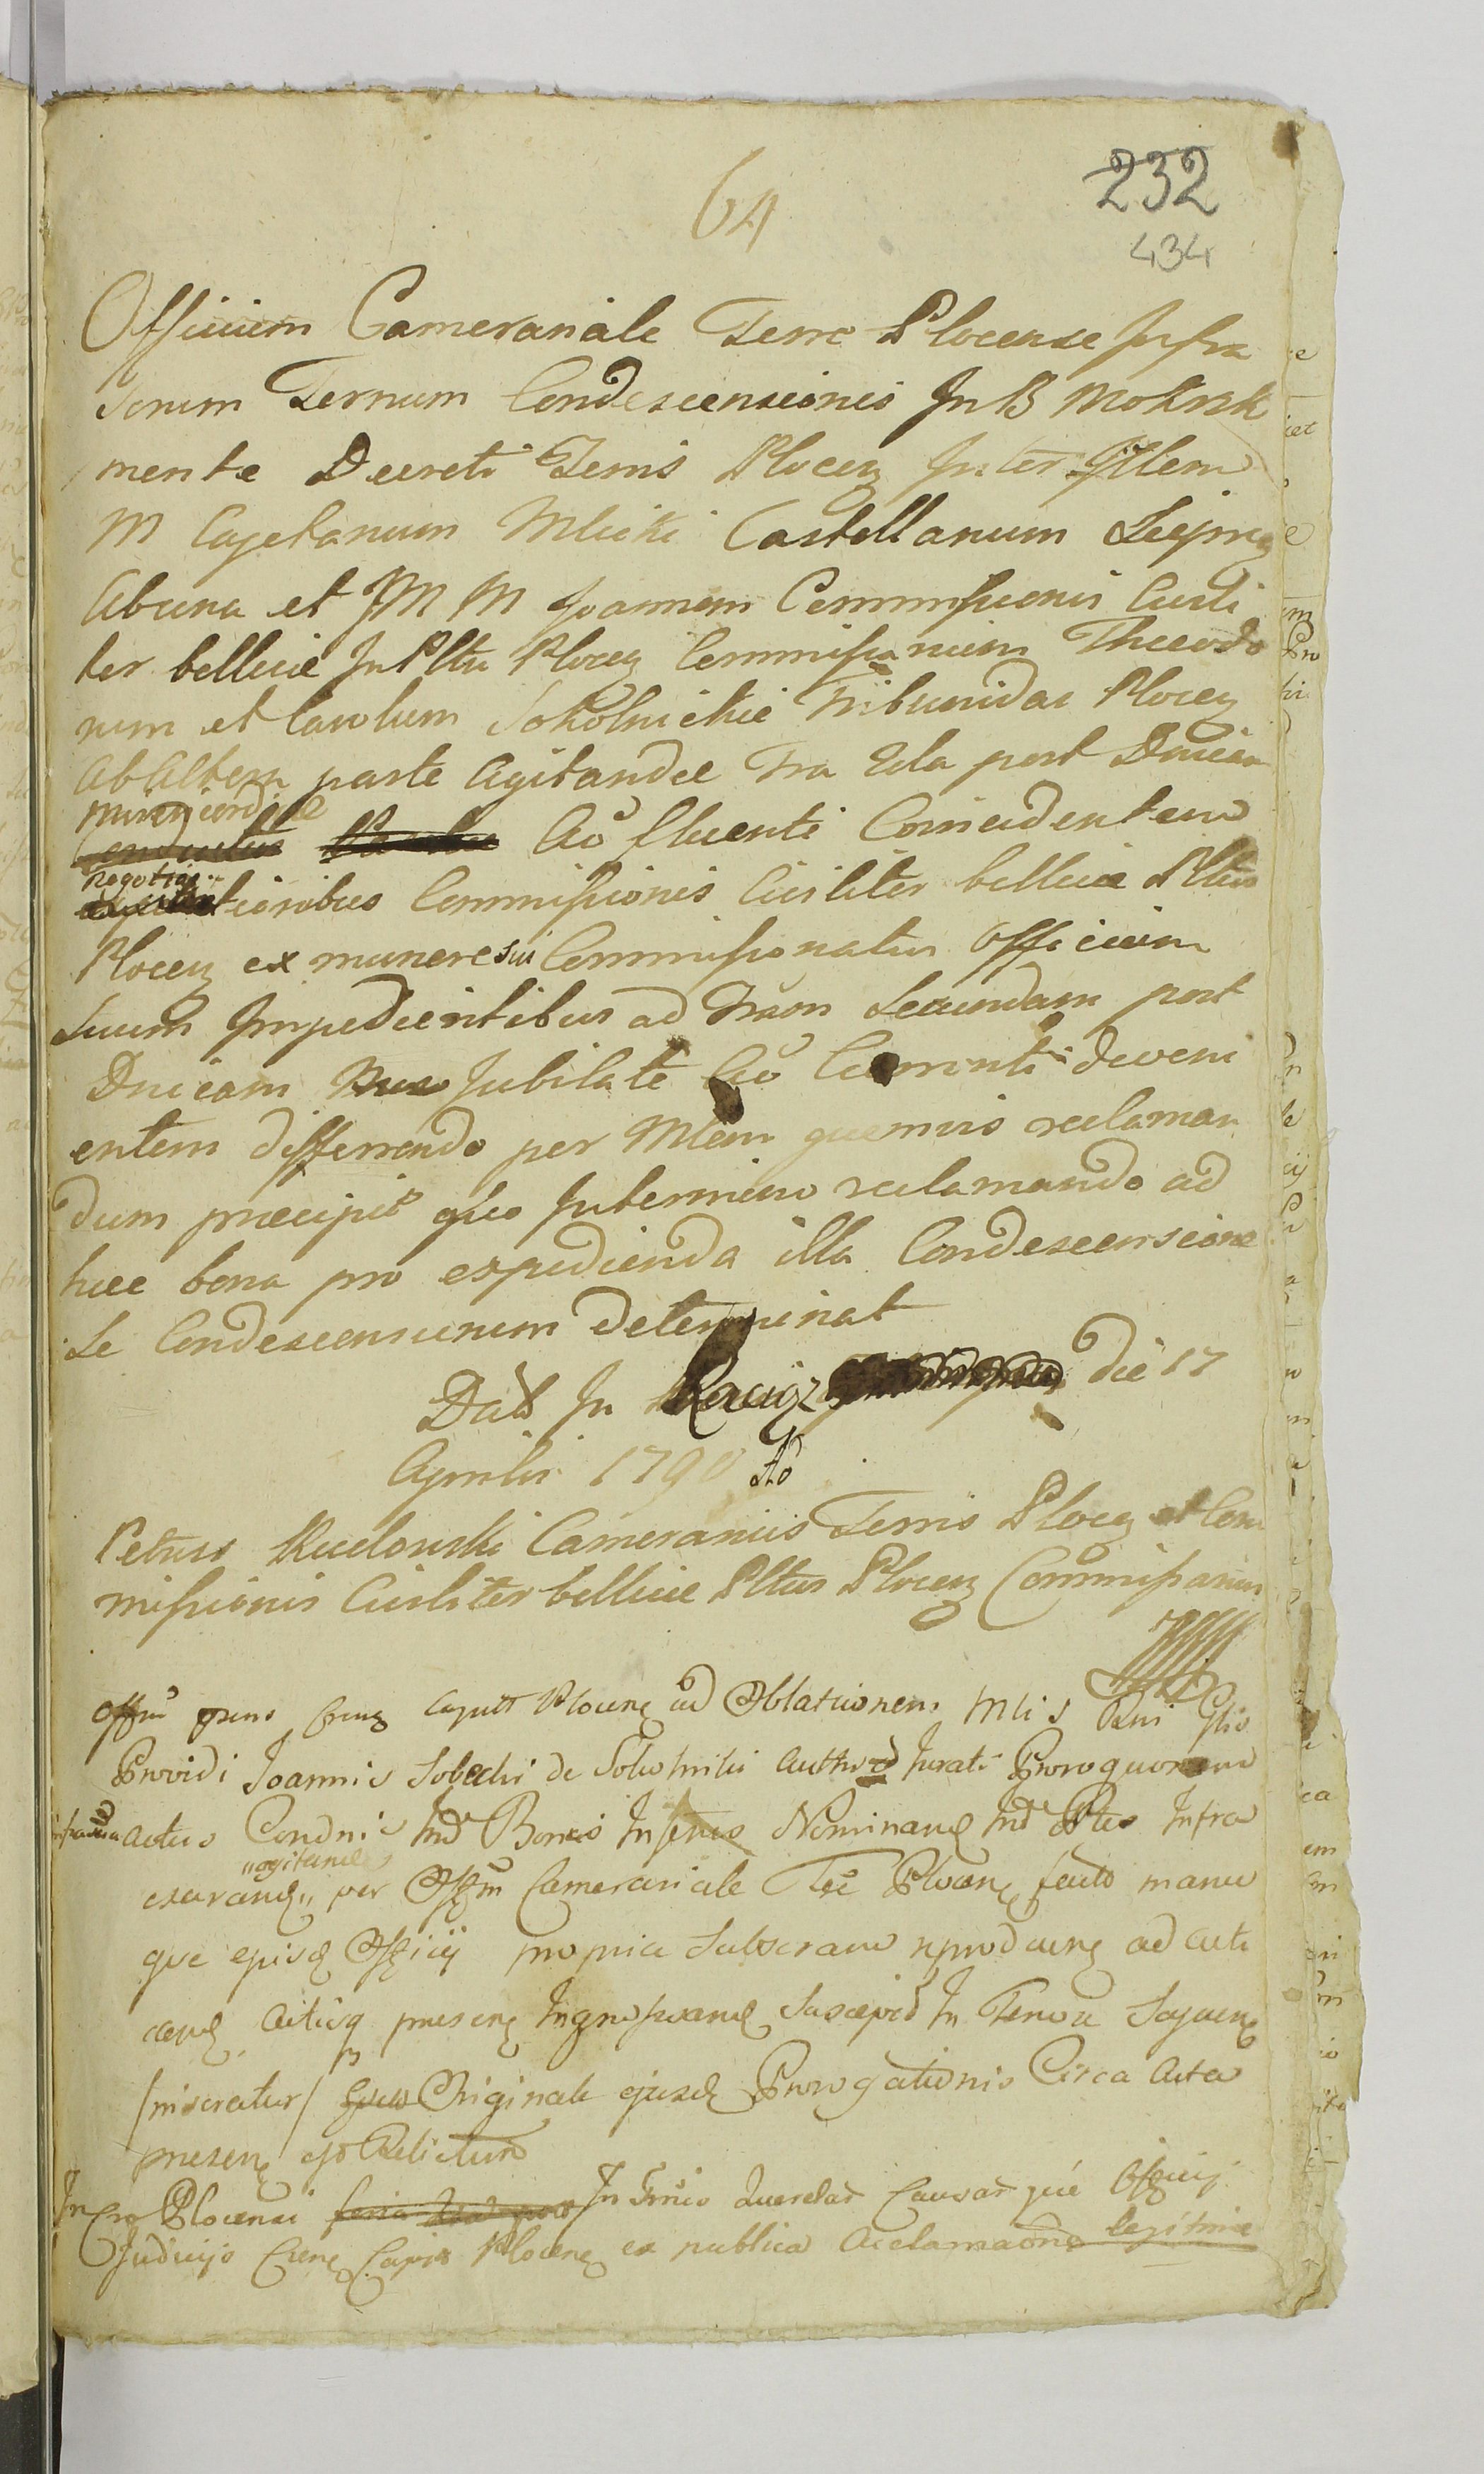 64
232
434
Officium Camerariale Terre Plocense Infra
Scrum Ternum Condescensionis In B Mokrzk
mente Decreti Terris Plocen Inter Illem
M Cajetanum Mlicki Castellanum Siepcen
Abuna et JM M Joannem Commissionis Civili
ter bellice In Pltu Plocen Commissarium Theodo
rum et Carolum Sokolnickie Tribunidas Plocen
Ab Altera parte Agitandee Fra 2da post Dnicam
Misericordiae
Ao fluenti Comcidentem
negotiis
tionibus Commissionis Civiliter bellica Pltus
Plocen ex munere sui Commissionatus Officium
Suum Impedientibus ad Fram Secundam post
Dnicam Jubilate Ao Currenti deveni
entem differendo per Mlem quemvis reclaman
dum praecipit qtuo Intermino reclamando ad
haec bona pro expedienda illa Condescensione
Se Condescensurum determinat
Datt In Raciąż die 17
Aprilis 1790 Ao
Petrus Rudowski Camerarius Terris Plocen et Com
missionis Civiliter bellice Pltus Plocen Commissarius
Offm prens Crens Captt Plocens ad Oblationem Mlis Dni Glis
Providi Joannis Sobecki de Actu Jurati Prorogationem
Actus Condnis Ind Bonis Nominand Ind Ptes Infra
agitand
exarand per Offm Camerariale Tre Plocens facto manu
que ejusd Offcij propria Subscram reproducens ad acti
cand Actisq presens Ingrossand Suscepit In Tenore Sequens
/inseratur/ Originale ejusd Prorogationis Circa Acta
presens est Relictum
In Cro Plocensi In Tmis Querelar Causar que Officij
Judicijs Crens Capts Plocens ex publica Acclamaone legitime